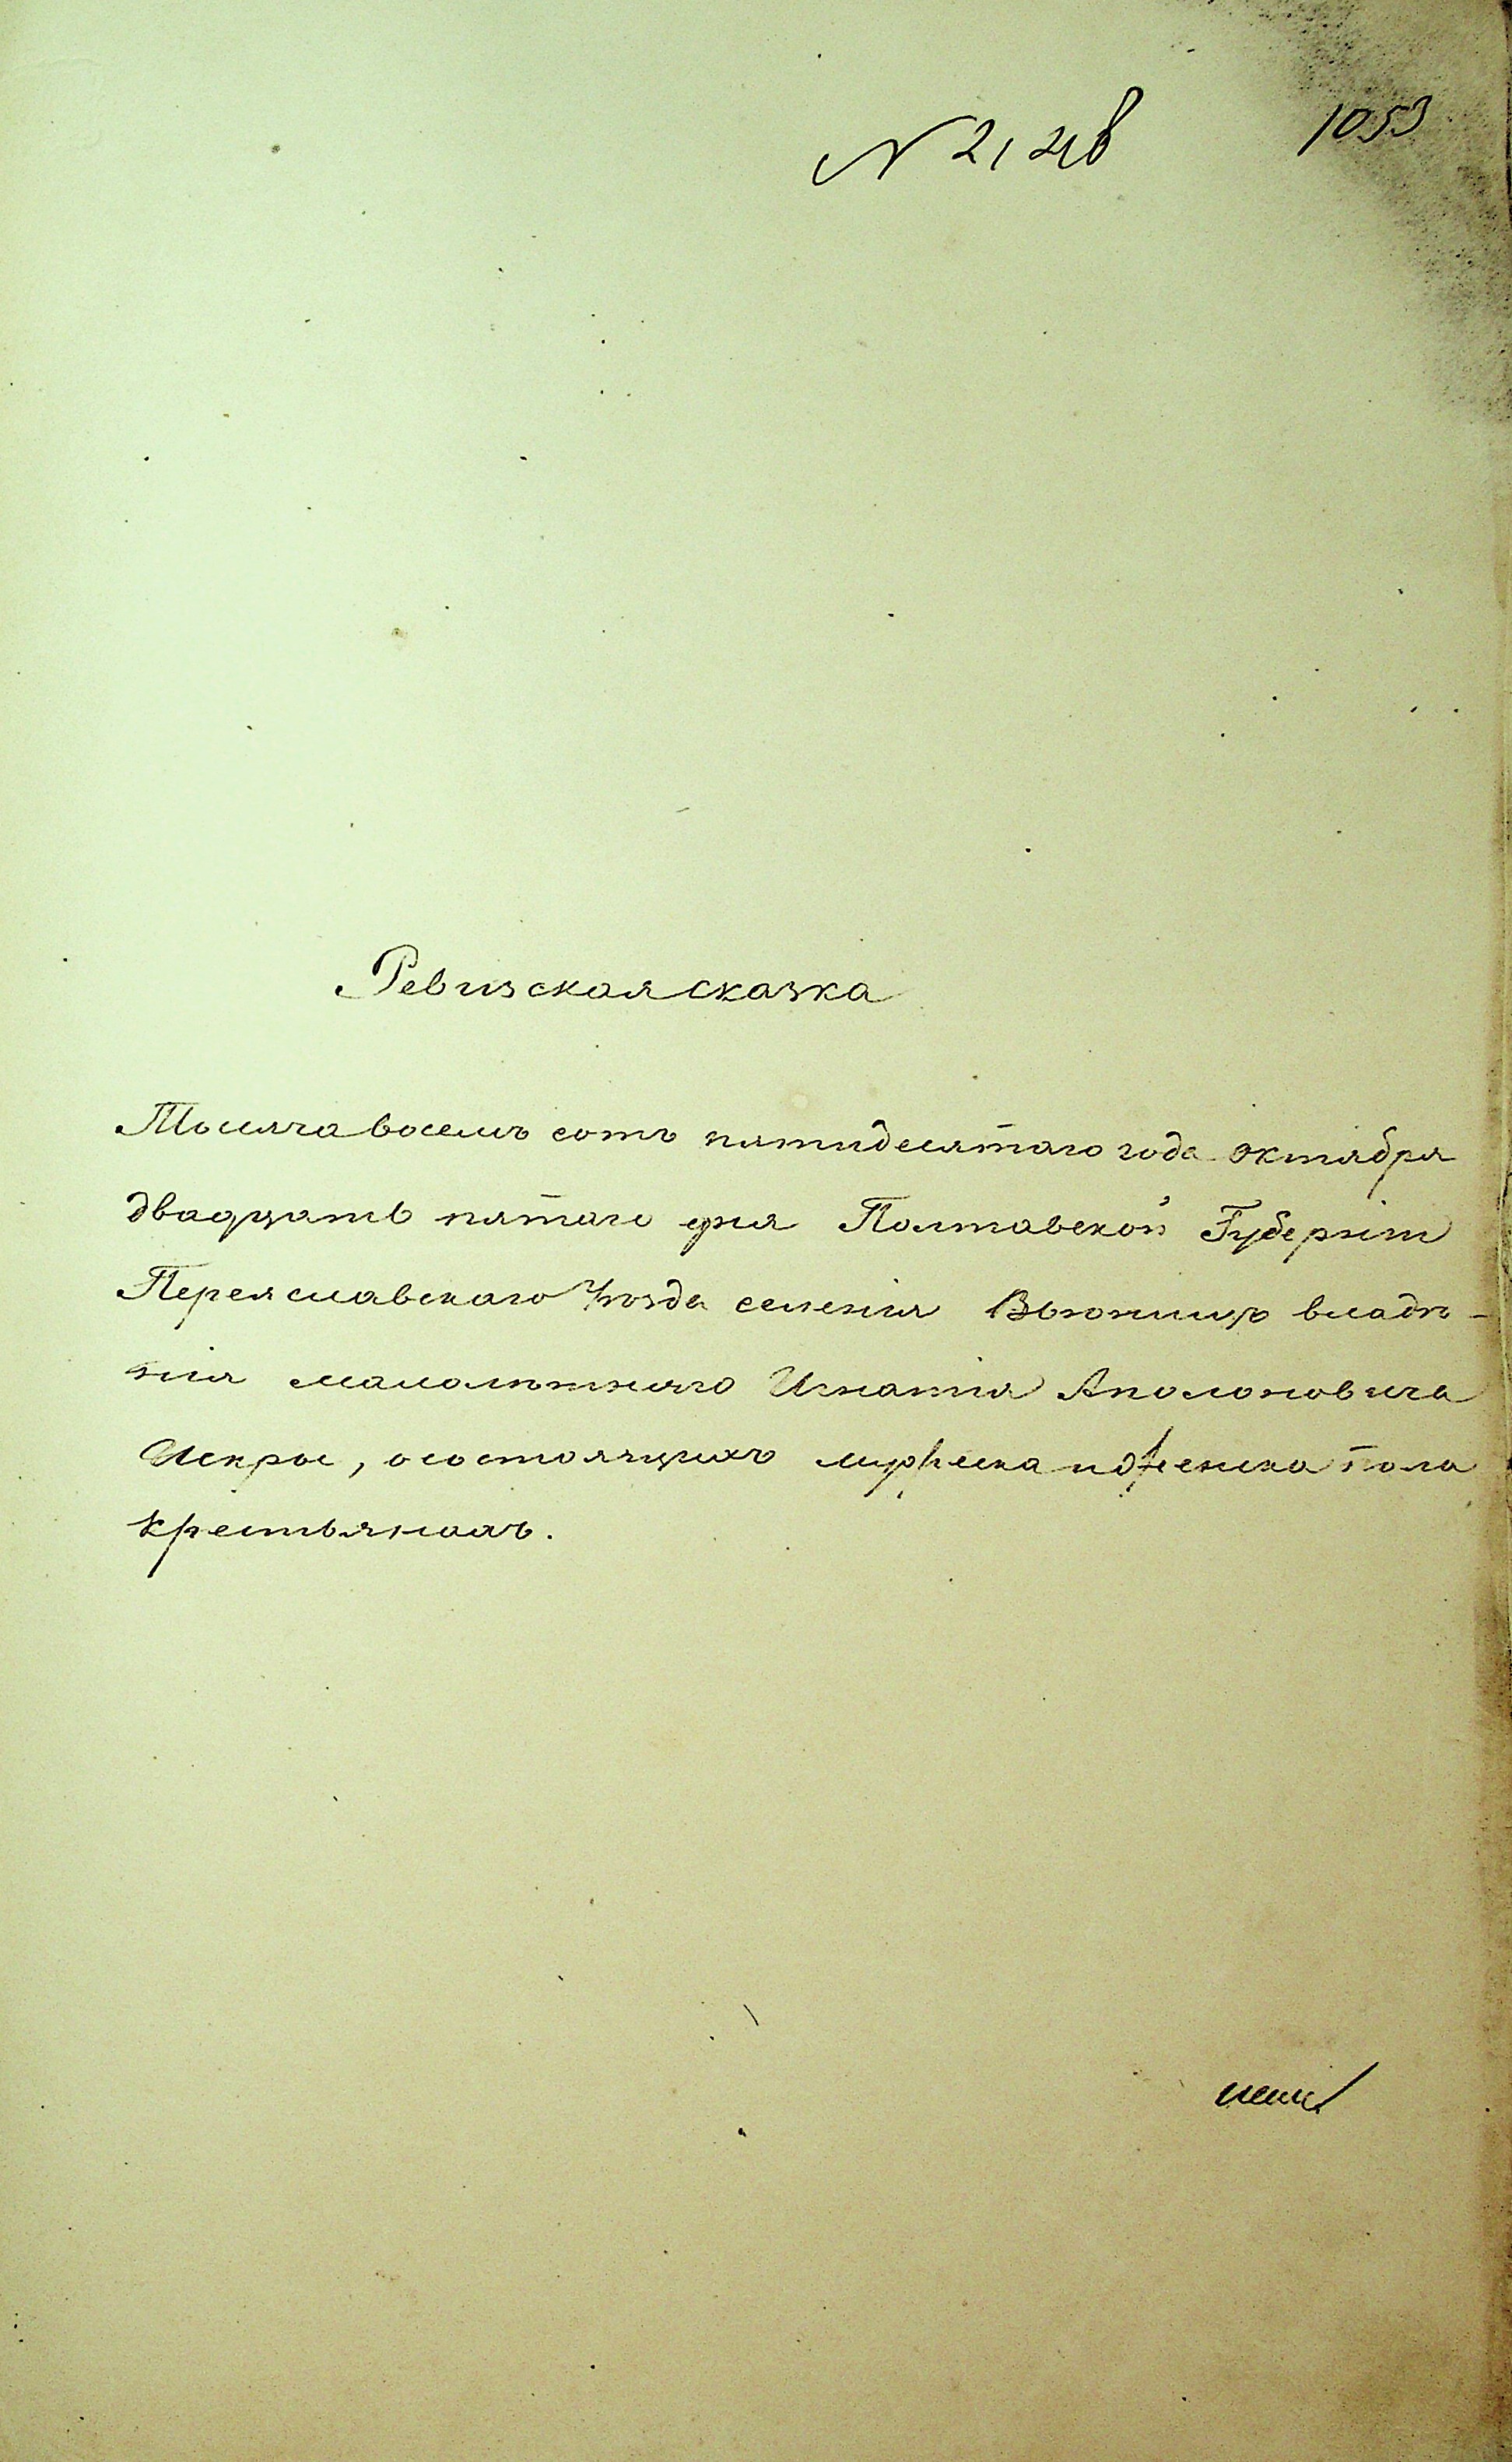 1053
Ревизская сказка
Тысяча восемъ сотъ пятидесятаго года октября
двадцать пятаго дня Полтавской Губерніи
Переяславскаго Уѣзда селенія Вьюнищъ владѣ-
нія малолѣтняго Игнатія Аполоновича
Искры, о состоящихъ мужеска и женска пола
крестьянахъ.